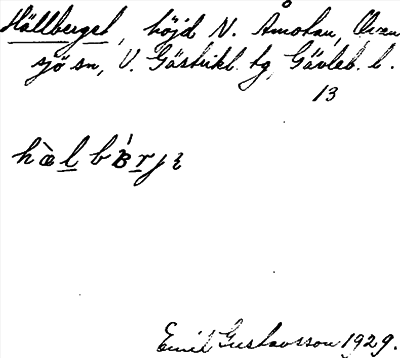 Hällberget, höjd N. Åmotan, Ocken
sjö sn, V. Gästrikl. tg, Gävleb. l.
13
hæ̀l bɞ́rjɛ
Emil Gustavsson 1929.